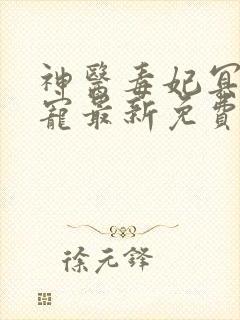 神醫毒妃冥
寵最新免費
徐元鋒